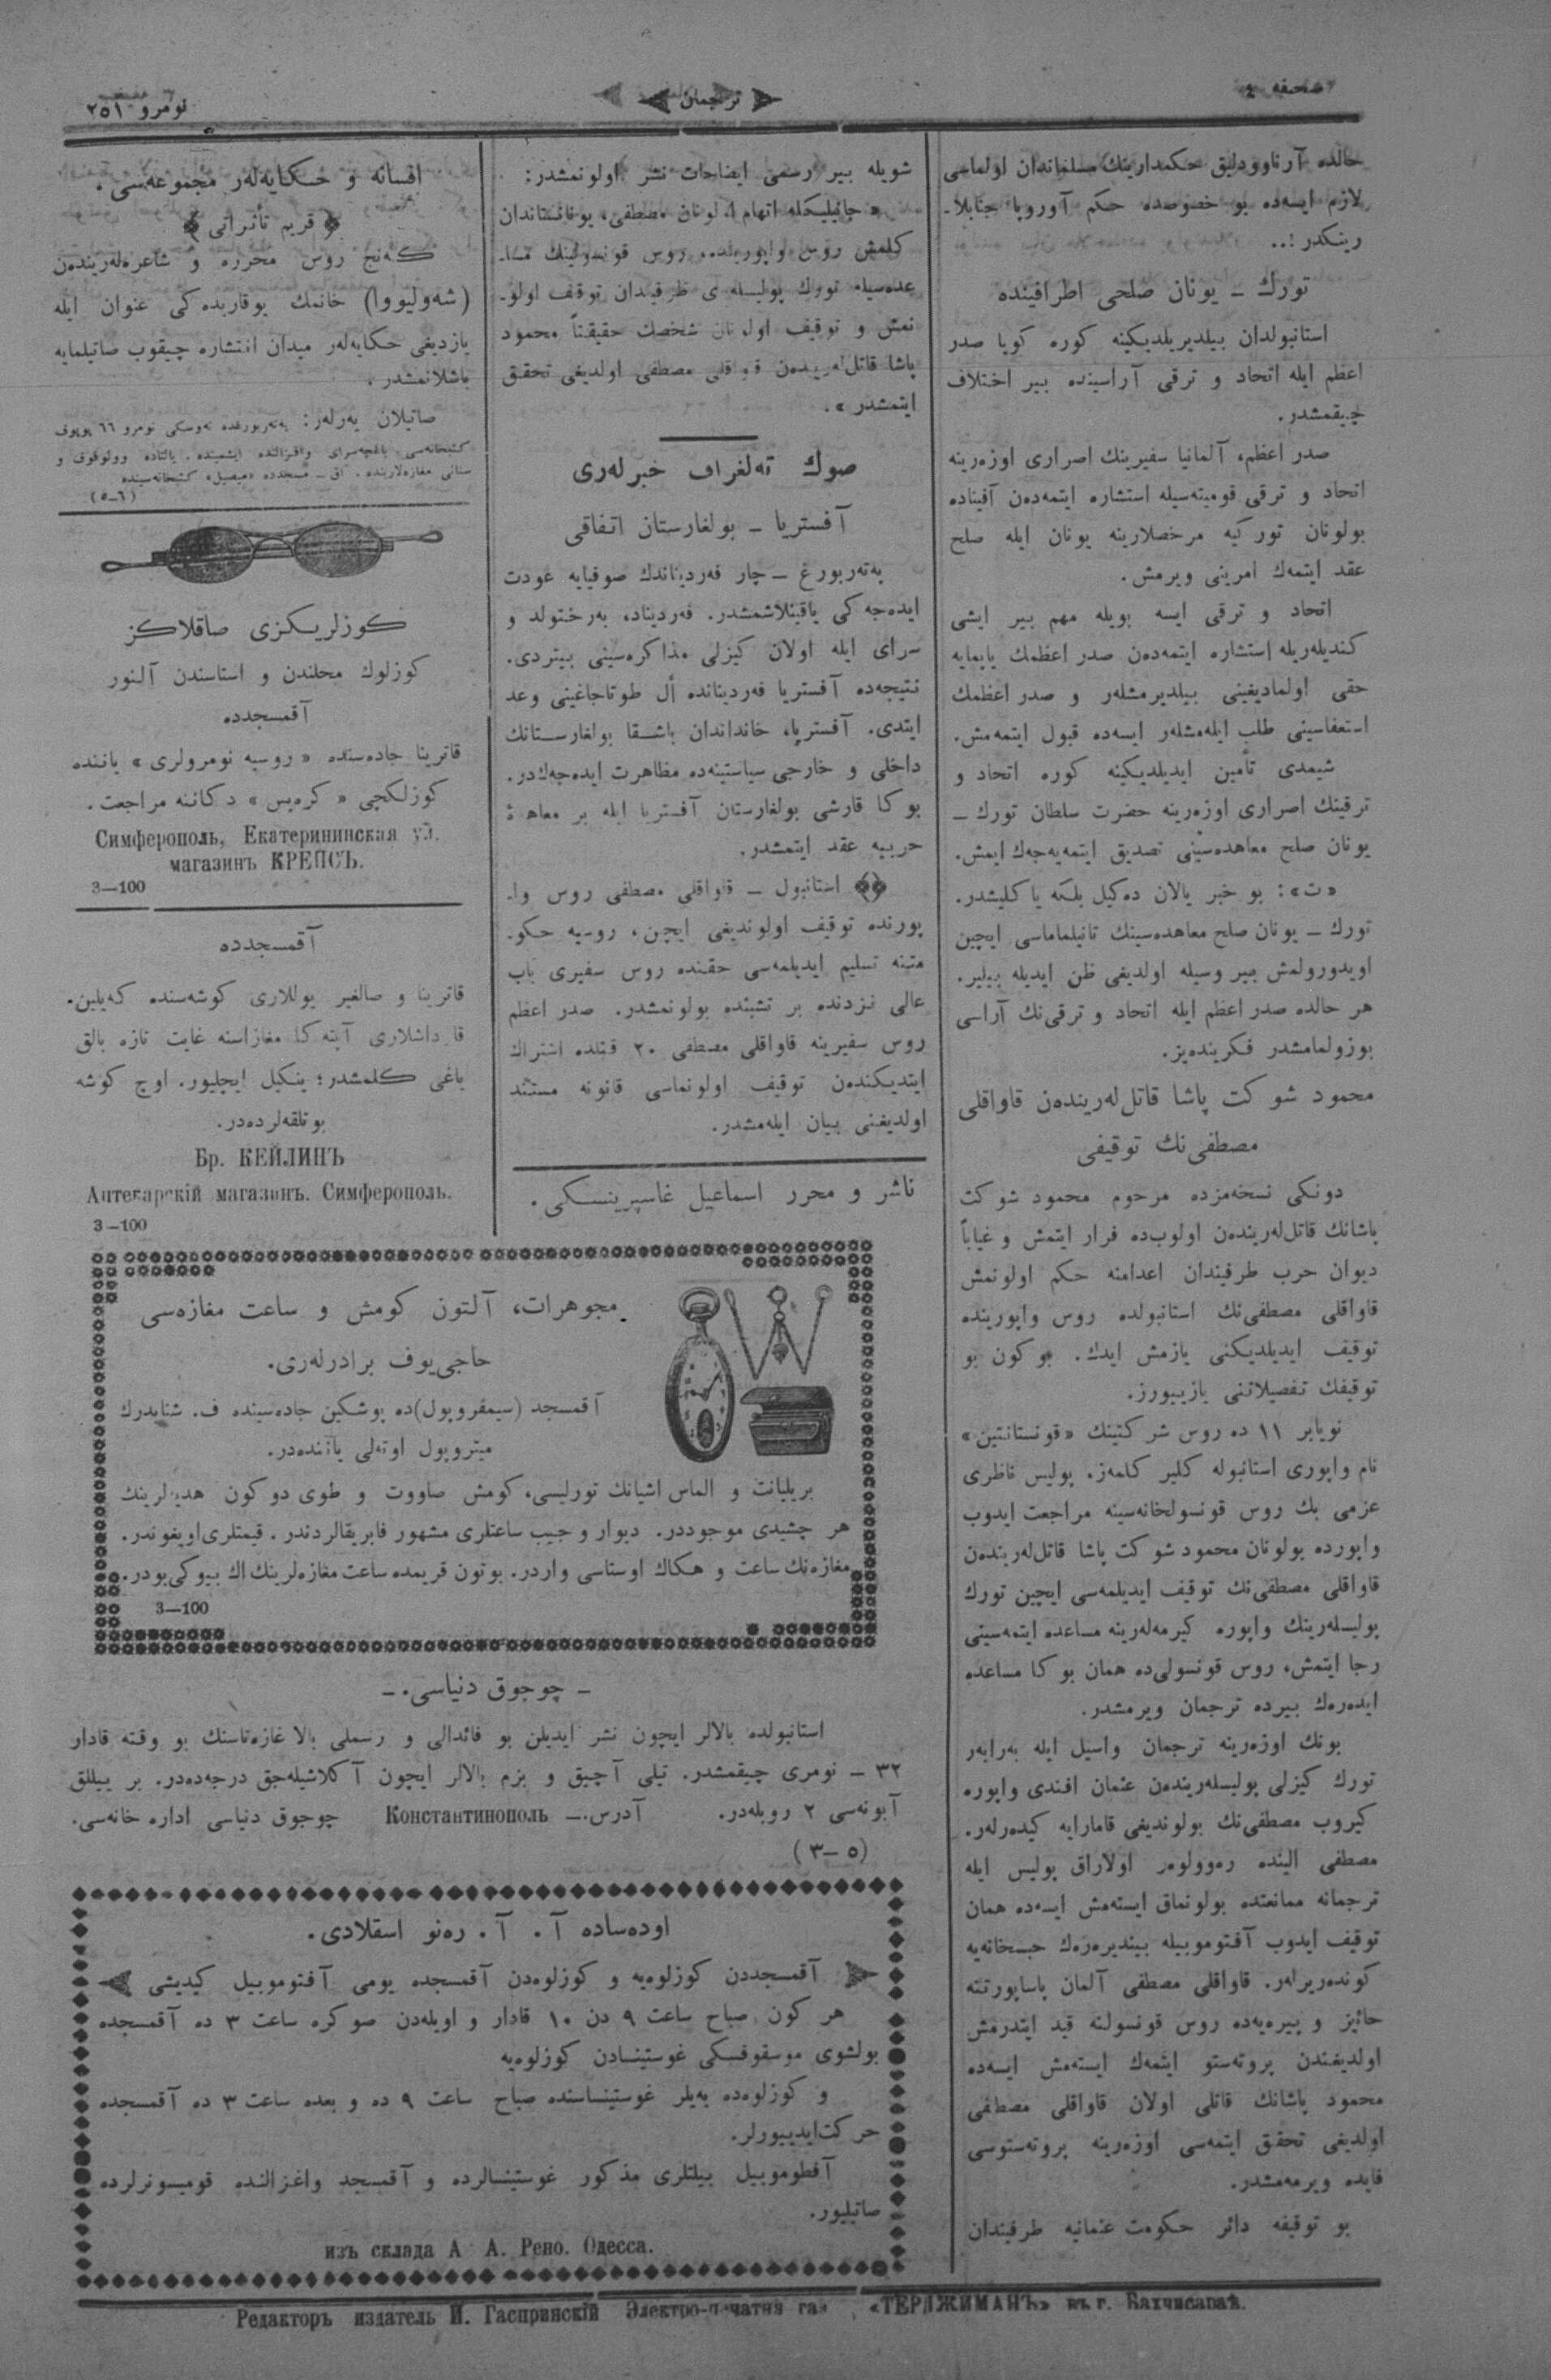 صحیفه ٤
ترجمان
نومرو ٢٥١
حالده آرناوودلیق حکمدارینك مسلمانه‌دان اولماسی
لازم ایسه‌ده بو خصوصده حکم آوروپا جنابلا-
رینکدر!..
تورك – یونان صلحی اطرافینده
استانبولدان بیلدیریلدیکینه کوره کویا صدر
اعظم ایله اتحاد و ترقی آراسینده بیر اختلاف
چیقمشدر.
صدر اعظم، آلمانیا سفیرینك اصراری اوزه‌رینه
اتحاد و ترقی قومیته‌سیله استشاره ایتمه‌دەن آفیناده
بولونان تورکیه مرخصلارینه یونان ایله صلح
عقد ایتمه‌ك امرینی ویرمش.
اتحاد و ترقی ایسه بویله مهم بیر ایشی
کندیله‌ریله استشاره ایتمه‌دەن صدر اعظمك یاپمایه
حقی اولمادیغینی بیلدیرمشلەر و صدر اعظمك
استعفاسینی طلب ایله‌مشلەر ایسه‌ده قبول ایتمه‌مش.
شیمدی تأمین ایدیلدیکینه کوره اتحاد و
ترقینك اصراری اوزه‌رینه حضرت سلطان تورك –
یونان صلح معاهده‌سینی تصدیق ایتمه‌یه‌جه‌ك ایمش.
«ت»: بو خبر یالان ده‌کیل بلکه یاکلیشدر.
تورك – یونان صلح معاهده‌سینك تانیلماماسی ایچین
اویدورولمش بیر وسیله اولدیغی ظن ایدیله بیلیر.
هر حالده صدر اعظم ایله اتحاد و ترقی‌نك آراسی
بوزولمامشدر فکرینده‌یز.
محمود شوکت پاشا قاتل‌لەریندەن قاواقلی
مصطفی‌نك توقیفی
دونکی نسخه‌مزده مرحوم محمود شوکت
پاشانك قاتل‌لەریندەن اولوب‌ده فرار ایتمش و غیاباً
دیوان حرب طرفیندان اعدامنه حکم اولونمش
قاواقلی مصطفی‌نك استانبولده روس واپورینده
توقیف ایدیلدیکنی یازمش ایدك. بوکون بو
توقیفك تفصیلاتنی یازییورز.
نویابر ١١ ده روس شرکتینك «قونستانتین»
نام واپوری استانبوله کلیر کلمه‌ز. پولیس ناظری
عزمی بك روس قونسولخانه‌سینه مراجعت ایدوب
واپورده بولونان محمود شوکت پاشا قاتل‌لەریندەن
قاواقلی مصطفی‌نك توقیف ایدیلمه‌سی ایچین تورك
پولیسلەرینك واپوره کیرمه‌لەرینه مساعده ایتمه‌سینی
رجا ایتمش، روس قونسولی‌ده همان بوکا مساعده
ایده‌ره‌ك بیرده ترجمان ویرمشدر.
بونك اوزه‌رینه ترجمان واسیل ایله به‌رابه‌ر
تورك کیزلی پولیسلەریندەن عثمان افندی واپوره
کیروب مصطفی‌نك بولوندیغی قامارایه کیده‌رلەر.
مصطفی الینده ره‌وولوه‌ر اولاراق پولیس ایله
ترجمانه ممانعتده بولونماق ایسته‌مش ایسه‌ده همان
توقیف ایدوب آفتوموبیله بیندیره‌ره‌ك حبسخانه‌یه
کونده‌ریرلەر. قاواقلی مصطفی آلمان پاساپورتنه
حائیز و پیره‌یه‌ده روس قونسولنه قید ایتدرمش
اولدیغندن پروته‌ستو ایتمه‌ك ایسته‌مش ایسه‌ده
محمود پاشانك قاتلی اولان قاواقلی مصطفی
اولدیغی تحقق ایتمه‌سی اوزه‌رینه پروته‌ستوسی
فایده ویرمه‌مشدر.
بو توقیفه دائر حکومت عثمانیه طرفیندان
شویله بیر رسمی ایضاحات نشر اولونمشدر:
«جانیلیکله اتهام اولونان مصطفی، یونانستاندان
کلمش روس واپوریلده.. روس قونسولینك مسا-
عده‌سیله تورك پولیسله‌ی طرفیدان توقف اولو-
نمش و توقیف اولونان شخصك حقیقتاً محمود
پاشا قاتل‌لەریندەن قاواقلی مصطفی اولدیغی تحقق
ایتمشدر».
صوك ته‌لغراف خبرلەری
آفستریا – بولغارستان اتفاقی
په‌ته‌ربورغ – چار فه‌ردیناندك صوفیایه عودت
ایده‌جه‌کی یاقینلاشمشدر. فه‌ردیناد، به‌رختولد و
سرای ایله اولان کیزلی مذاکره‌سینی بیتردی.
نتیجه‌ده آفستریا فه‌ردیناندە أل طوتاجاغینی وعد
ایتدی. آفستریا، خانداندان باشقا بولغارستانك
داخلی و خارجی سیاستینه‌ده مظاهرت ایده‌جه‌كدر.
بوکا قارشی بولغارستان آفستریا ایله بر معاهدۀ
حربیه عقد ایتمشدر.
استانبول – قاواقلی مصطفی روس وا-
پورنده توقیف اولوندیغی ایچن، روسیه حکو-
متینه تسلیم ایدیلمه‌سی حقنده روس سفیری باب
عالی نزدنده بر تشبثده بولونمشدر. صدر اعظم
روس سفیرینه قاواقلی مصطفی ٢٠ قتلده اشتراك
ایتدیکندەن توقیف اولونماسی قانونه مستند
اولدیغنی بیان ایله‌مشدر.
ناشر و محرر اسماعیل غاسپرینسکی.
افسانه و حکایه‌لەر مجموعه‌سی.
﴿قریم تأثراتی﴾
که‌نج روس محرره و شاعره‌لەریندەن
(شه‌ولیووا) خانمك یوقاریده‌کی عنوان ایله
یازدیغی حکایه‌لەر میدان انتشاره چیقوب صاتیلمایه
باشلانمشدر.
صاتیلان یه‌رلەر: په‌ته‌ربورغده نه‌وسکی نومرو ٦٦ پوپوف
کتبخانه‌سی، باغچه‌سرای واقزالنده ایشمینده. یالتاده وولوقوف و
(٥–٦)
کوزلریکزی صاقلاکز
کوزلوك محلندن و استاسندن آلنور
آقمسجدده
قاترینا جاده‌سنده «روسیه نومرولری» یاننده
کوزلکچی «کرەپس» دکاننه مراجعت.
Симферополь, Екатерининская ул.
магазинъ КРЕПСЪ.
3—100
آقمسجدده
قاترینا و صالغیر یوللاری کوشه‌سنده که‌یلین-
قارداشلاری آپته‌کا مغازاسنه غایت تازه بالق
یاغی کلمشدر؛ ینکیل ایچلیور. اوچ کوشه
بوتلقه‌لرده‌در.
Бр. КЕЙЛИНЪ
Аптекарскій магазинъ. Симферополь.
3—100
مجوهرات، آلتون کومش و ساعت مغازه‌سی
حاجی‌یوف برادرلەری.
آقمسجد (سیمفروپول)ده پوشکین جاده‌سینده ف. شنایدرك
میتروپول اوته‌لی یاننده‌در.
بریلیانت و الماس اشیانك تورلیسی، کومش صاووت و طوی دوکون هدیه‌لرینك
هر چشیدی موجوددر. دیوار و جیب ساعتلری مشهور فابریقالردندر. قیمتلری اویغوندر.
مغازه‌نك ساعت و هکاك اوستاسی واردر. بوتون قریمده ساعت مغازه‌لرینك اك بیوکی بودر.
3—100
– چوجوق دنیاسی. –
استانبولده بالالر ایچون نشر ایدیلن بو فائدالی و رسملی بالا غازه‌تاسنك بو وقته قادار
٣٢ – نومری چیقمشدر. تیلی آچیق و بزم بالالر ایچون آکلاشیله‌جق درجه‌ده‌در. بر ییللق
آبونه‌سی ٢ روبله‌در. آدرس.— Константинополь چوجوق دنیاسی اداره خانه‌سی.
(٥–٣)
اوده‌ساده آ. آ. ره‌نو اسقلادی.
آقمسجددن کوزلوه‌یه و کوزلوه‌دن آقمسجده یومی آفتوموبیل کیدیشی
هر کون صباح ساعت ٩ دن ١٠ قادار و اویله‌دن صوکره ساعت ٣ ده آقمسجده
بولشوی موسقوفسکی غوستینسادن کوزلوه‌یه
و کوزلوه‌ده به‌یلر غوستینساسنده صباح ساعت ٩ ده و بعده ساعت ٣ ده آقمسجده
حرکت‌ایدییورلر.
آفطوموبیل بیلتلری مذکور غوستینسالرده و آقمسجد واغزالنده قومیسونرلرده
صاتیلیور.
изъ склада А А. Рено. Одесса.
Редакторъ издатель И. Гаспринскій Электро-печатня газ. «ТЕРДЖИМАНЪ» въ г. Бахчисараѣ.